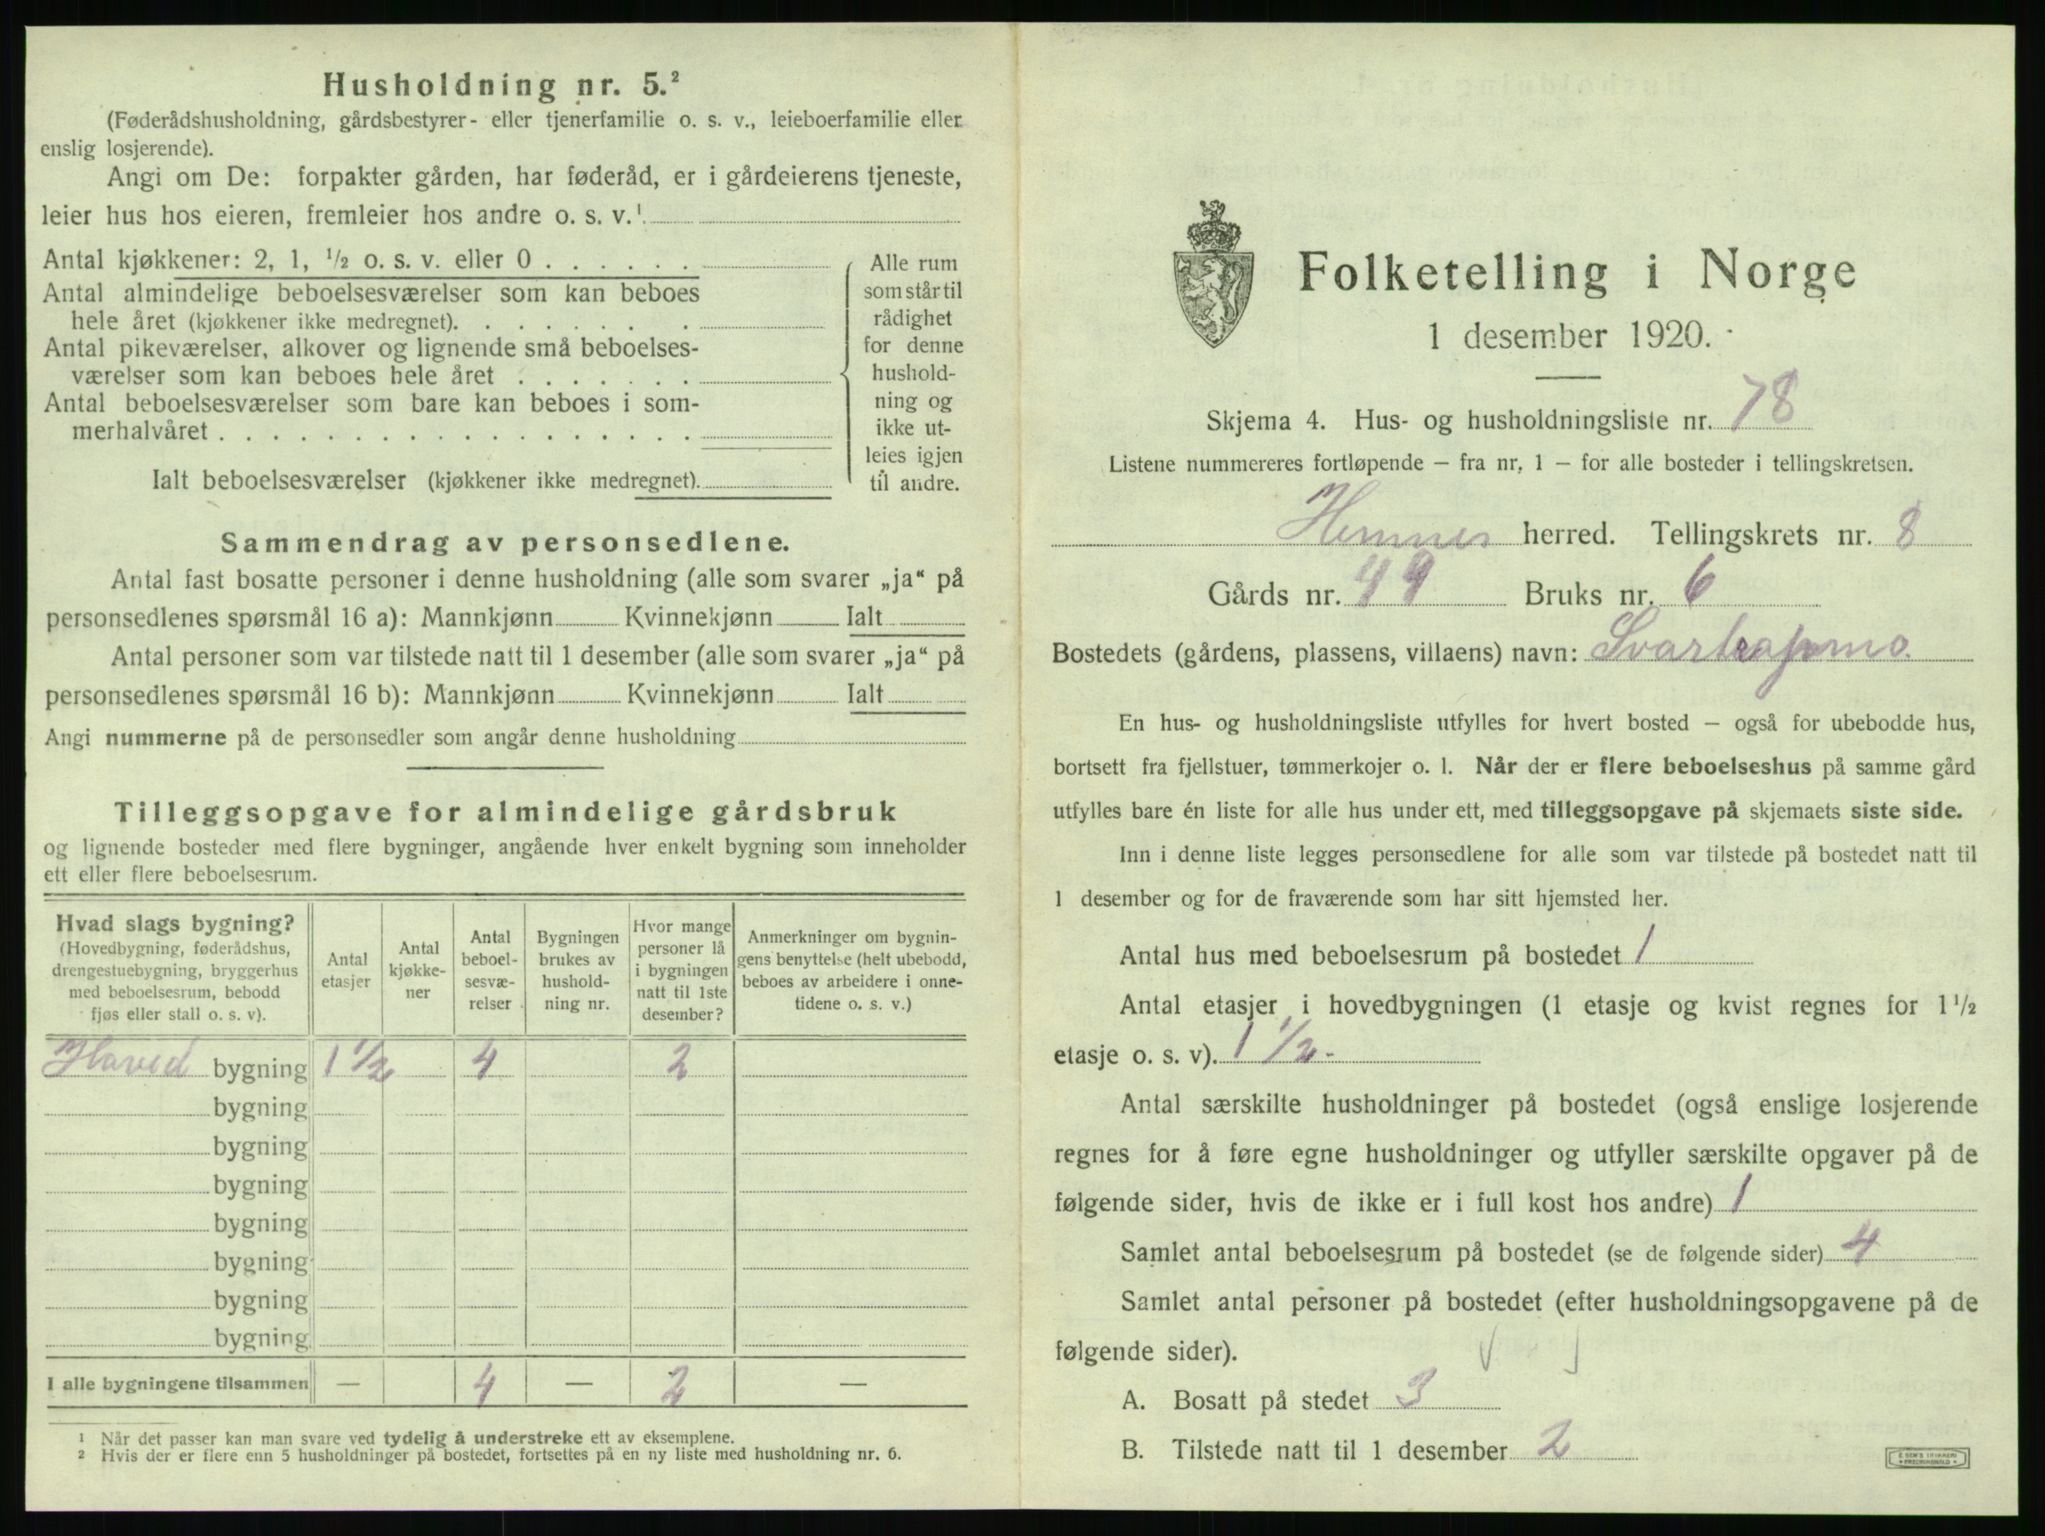 Husholdning nr. 5.²
(Føderådshusholdning, gårdsbestyrer- eller tjenerfamilie o. s. v., leieboerfamilie eller
enslig losjerende).
Angi om De: forpakter gården, har føderåd, er i gårdeierens tjeneste,
leier hus hos eieren, fremleier hos andre o. s. v.¹
Antal kjøkkener: 2, 1, ½ o. s. v. eller 0 . . . . . .
Antal almindelige beboelsesværelser som kan beboes
hele året (kjøkkener ikke medregnet). . . . . . . .
Antal pikeværelser, alkover og lignende små beboelses-
værelser som kan beboes hele året . . . . . . .
Antal beboelsesværelser som bare kan beboes i som-
merhalvåret . . . . . . . . . . . . . . . . . .
Ialt beboelsesværelser (kjøkkener ikke medregnet).
Alle rum
som står til
rådighet
for denne
hushold-
ning og
ikke ut-
leies igjen
til andre.
Sammendrag av personsedlene.
Antal fast bosatte personer i denne husholdning (alle som svarer „ja“ på
personsedlenes spørsmål 16 a): Mannkjønn Kvinnekjønn Ialt
Antal personer som var tilstede natt til 1 desember (alle som svarer „ja“ på
personsedlenes spørsmål 16 b): Mannkjønn Kvinnekjønn Ialt
Angi nummerne på de personsedler som angår denne husholdning
Tilleggsopgave for almindelige gårdsbruk
og lignende bosteder med flere bygninger, angående hver enkelt bygning som inneholder
ett eller flere beboelsesrum.
Hvad slags bygning?
(Hovedbygning, føderådshus,
drengestuebygning, bryggerhus
med beboelsesrum, bebodd
fjøs eller stall o. s. v).
Antal
etasjer
Antal
kjøkke-
ner
Antal
beboel-
sesvæ-
relser
Bygningen
brukes av
hushold-
ning nr.
Hvor mange
personer lå
i bygningen
natt til 1ste
desember?
Anmerkninger om bygnin-
gens benyttelse (helt ubebodd,
beboes av arbeidere i onne-
tidene o. s. v.)
Hoved bygning 1 ½ 4 2
bygning
bygning
bygning
bygning
bygning
bygning
bygning
I alle bygningene tilsammen — 4 — 2 —
¹ Når det passer kan man svare ved tydelig å understreke ett av eksemplene.
² Hvis der er flere enn 5 husholdninger på bostedet, fortsettes på en ny liste med husholdning nr. 6.
Folketelling i Norge
1 desember 1920.
Skjema 4. Hus- og husholdningsliste nr. 78
Listene nummereres fortløpende – fra nr. 1 – for alle bosteder i tellingskretsen.
Hemnes herred. Tellingskrets nr. 8
Gårds nr. 49 Bruks nr. 6
Bostedets (gårdens, plassens, villaens) navn:
En hus- og husholdningsliste utfylles for hvert bosted – også for ubebodde hus,
bortsett fra fjellstuer, tømmerkojer o. l. Når der er flere beboelseshus på samme gård
utfylles bare én liste for alle hus under ett, med tilleggsopgave på skjemaets siste side.
Inn i denne liste legges personsedlene for alle som var tilstede på bostedet natt til
1 desember og for de fraværende som har sitt hjemsted her.
Antal hus med beboelsesrum på bostedet 1
Antal etasjer i hovedbygningen (1 etasje og kvist regnes for 1 ½
etasje o. s. v). 1 ½ -
Antal særskilte husholdninger på bostedet (også enslige losjerende
regnes for å føre egne husholdninger og utfyller særskilte opgaver på de
følgende sider, hvis de ikke er i full kost hos andre) 1
Samlet antal beboelsesrum på bostedet (se de følgende sider) 4
Samlet antal personer på bostedet (efter husholdningsopgavene på de
følgende sider).
A. Bosatt på stedet 3
B. Tilstede natt til 1 desember 2